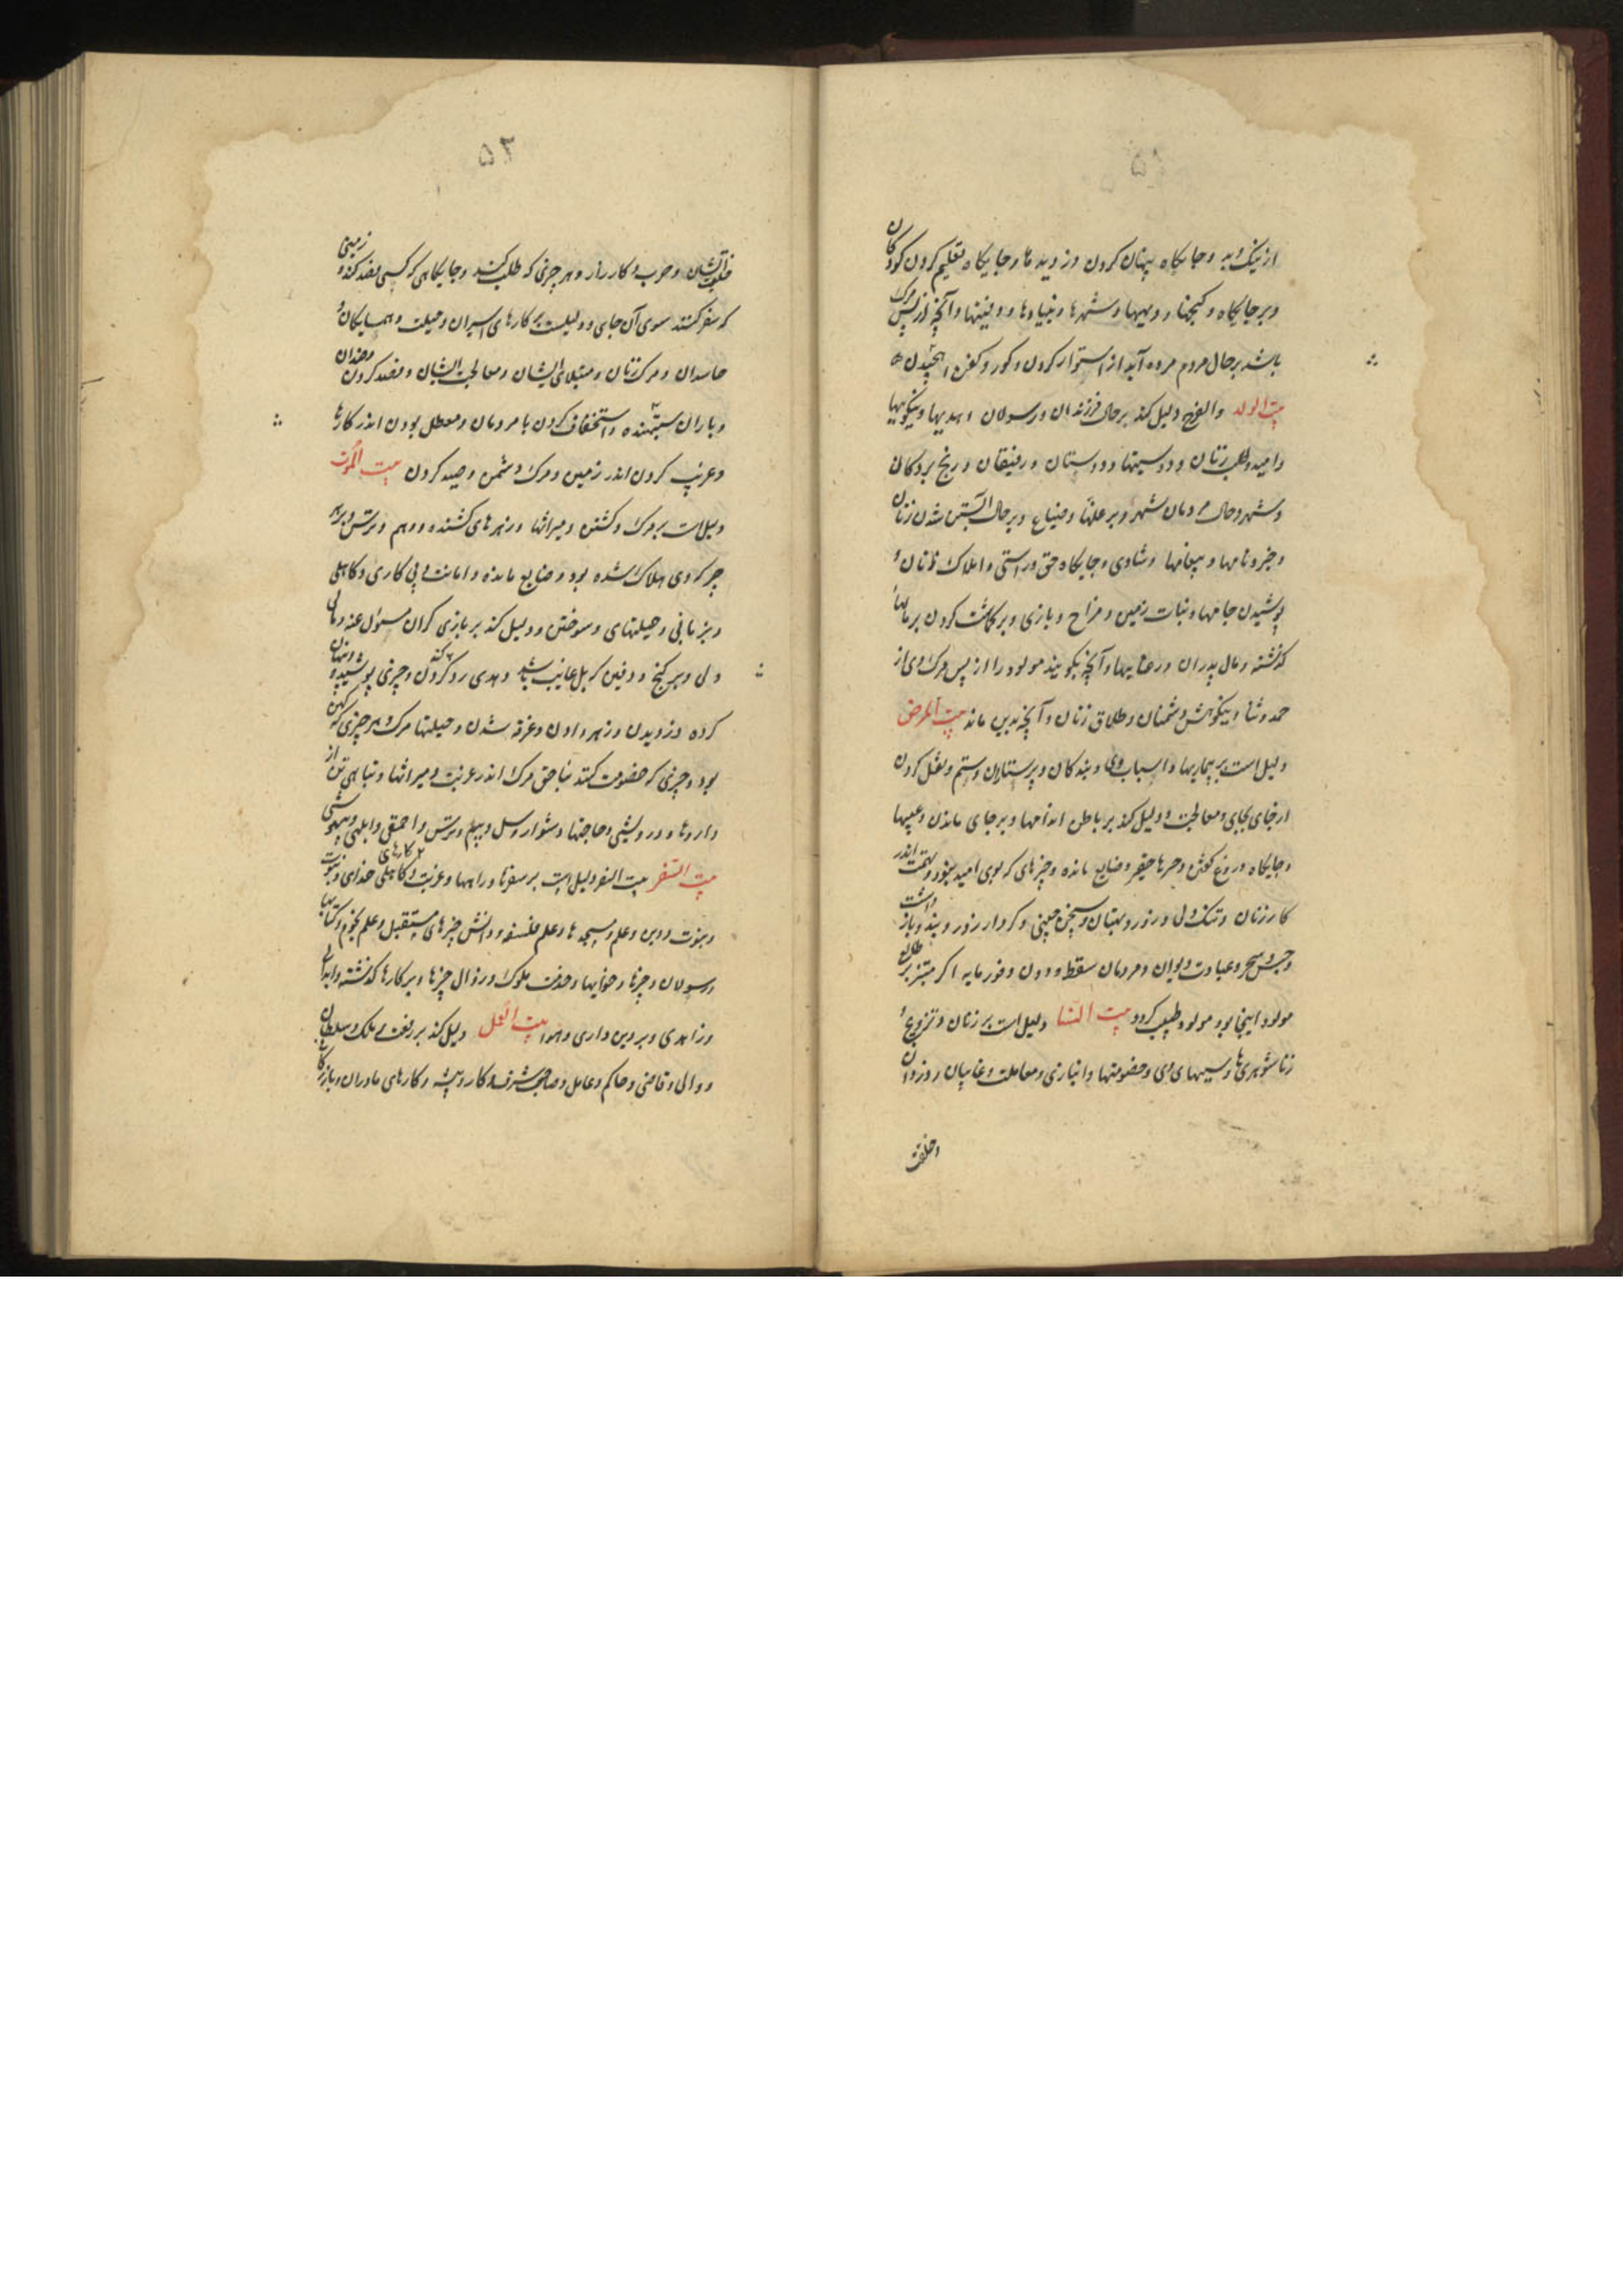 ۵۱
از نیک و بد و جایگاه پنهان کردن دزدیدها و جایگاه تعلیم کردن کودکان
و بر جایگاه و گنجها و دیهها و شهرها و بنیادها و دفینها و آنچه از پس مرگ
باشد بر حال مردم مرده آید از استوار کردن و گور و کفن
بیت الولد والفرح دلیل کند بر حال فرزندان و رسولان و هدیهها و نیکوییها
و امید و طلب زنان و دوستیها و دوستان و رفیقان و رنج بردگان
و شهر و حال مردمان شهر و بر غلتها و ضیاع و بر حال آبستن شدن زنان
و خبر و نامها و پیغامها و شادی و جایگاه حق و راستی و املاک
پوشیدن جامها و نبات زمین و مزاح و بازی و بر کاشت کردن بر مالهاء
گذشته و مال پدران و آنچه بگویند مولود را از پس مرگ وی از
حمد و ثنا و نیکوهش دشمنان و طلاق زنان و آنچه بدین ماند بیت المرض
دلیل است بر بیماریها و اسباب وی و بندگان و پرستاران و ستم و نقل کردن
از جای بجای و معالجت و دلیل کند بر باطن اندامها و بر جای ماندن و عیبها
و جایگاه دروغ گفتن و ضایع مانده و چیزهای که بوی امید نبود و تهمت اندر
کار زنان و تنگ دلی و زور و بهتان و سخن چینی و کردار زور و بند و باز داشت
و حبس و سحر و عبادت دیوان و مردمان سقط و دون و فرومایه اگر طالع
مولود اینجا بود مولود طبیب گردد بیت النسا دلیل است بر زنان و تزویج و
زناشوهریها و سببهای وی و خصومتها و انبازی و معاملت و غایبان و دزدان
۵۲
و حرب و کارزار و هر چیزی که طلب کنند و جایگاهی که کسی قصد کند و زمینی
که سفر کنند سوی آن جای و دلیلست بر کارهای اسیران و حیلت و همسایگان و
حاسدان و مرگ زنان و مبتلای ایشان و معالجت ایشان و قصد کردن
و یاران ستیهنده و استخفاف کردن با مردمان و معطل بودن اندر کارها
و غریب کردن اندر زمین و مرگ دشمن و صید کردن بیت الموت
دلیلست بر مرگ و کشتن و میراثها و زهرهای کشنده و وهم و ترس و بر هر
چه گروی هلاک شده بود و ضایع مانده و امانت و بی کاری و کاهلی
و حیلتهای و سوختن و دلیل کند بر یاری گران مسئول عنه و مال
ولی و بر گنج و دفین که غایب شد و چیزی پوشیده و پنهان
کرده دزدیدن و زهر دادن و غرقه شدن و حیلتها مرگ و هر چیزی که کهن
بود و چیزی که خصومت کنند بناحق مرگ اندر غربت و میراثها و تباهی تن از
داروها و درویشی و حاجتها و بیم و ترس و احمقی و ابلهی و بیهوشی
بیت السفر بیت السفر دلیل است بر سفرها و راهها و غربت و کارهای خدای و نبوت
و نبوت و دین و علم و مسجدها و علم فلسفه و دانش چیزهای مستقبل و علم نجوم و کتابها
و رسولان و خبرها و خوابها و خدمت ملوک و زوال چیزها و بر کارها گذشته و ابدال
و زاهدی و بر دین داری و بیت العمل دلیل کند بر رفعت و ملک و سلطان
و والی و قاضی و حاکم و عامل و صاحب شرف و کار و پیشه و کارهای مادران و بازرگان